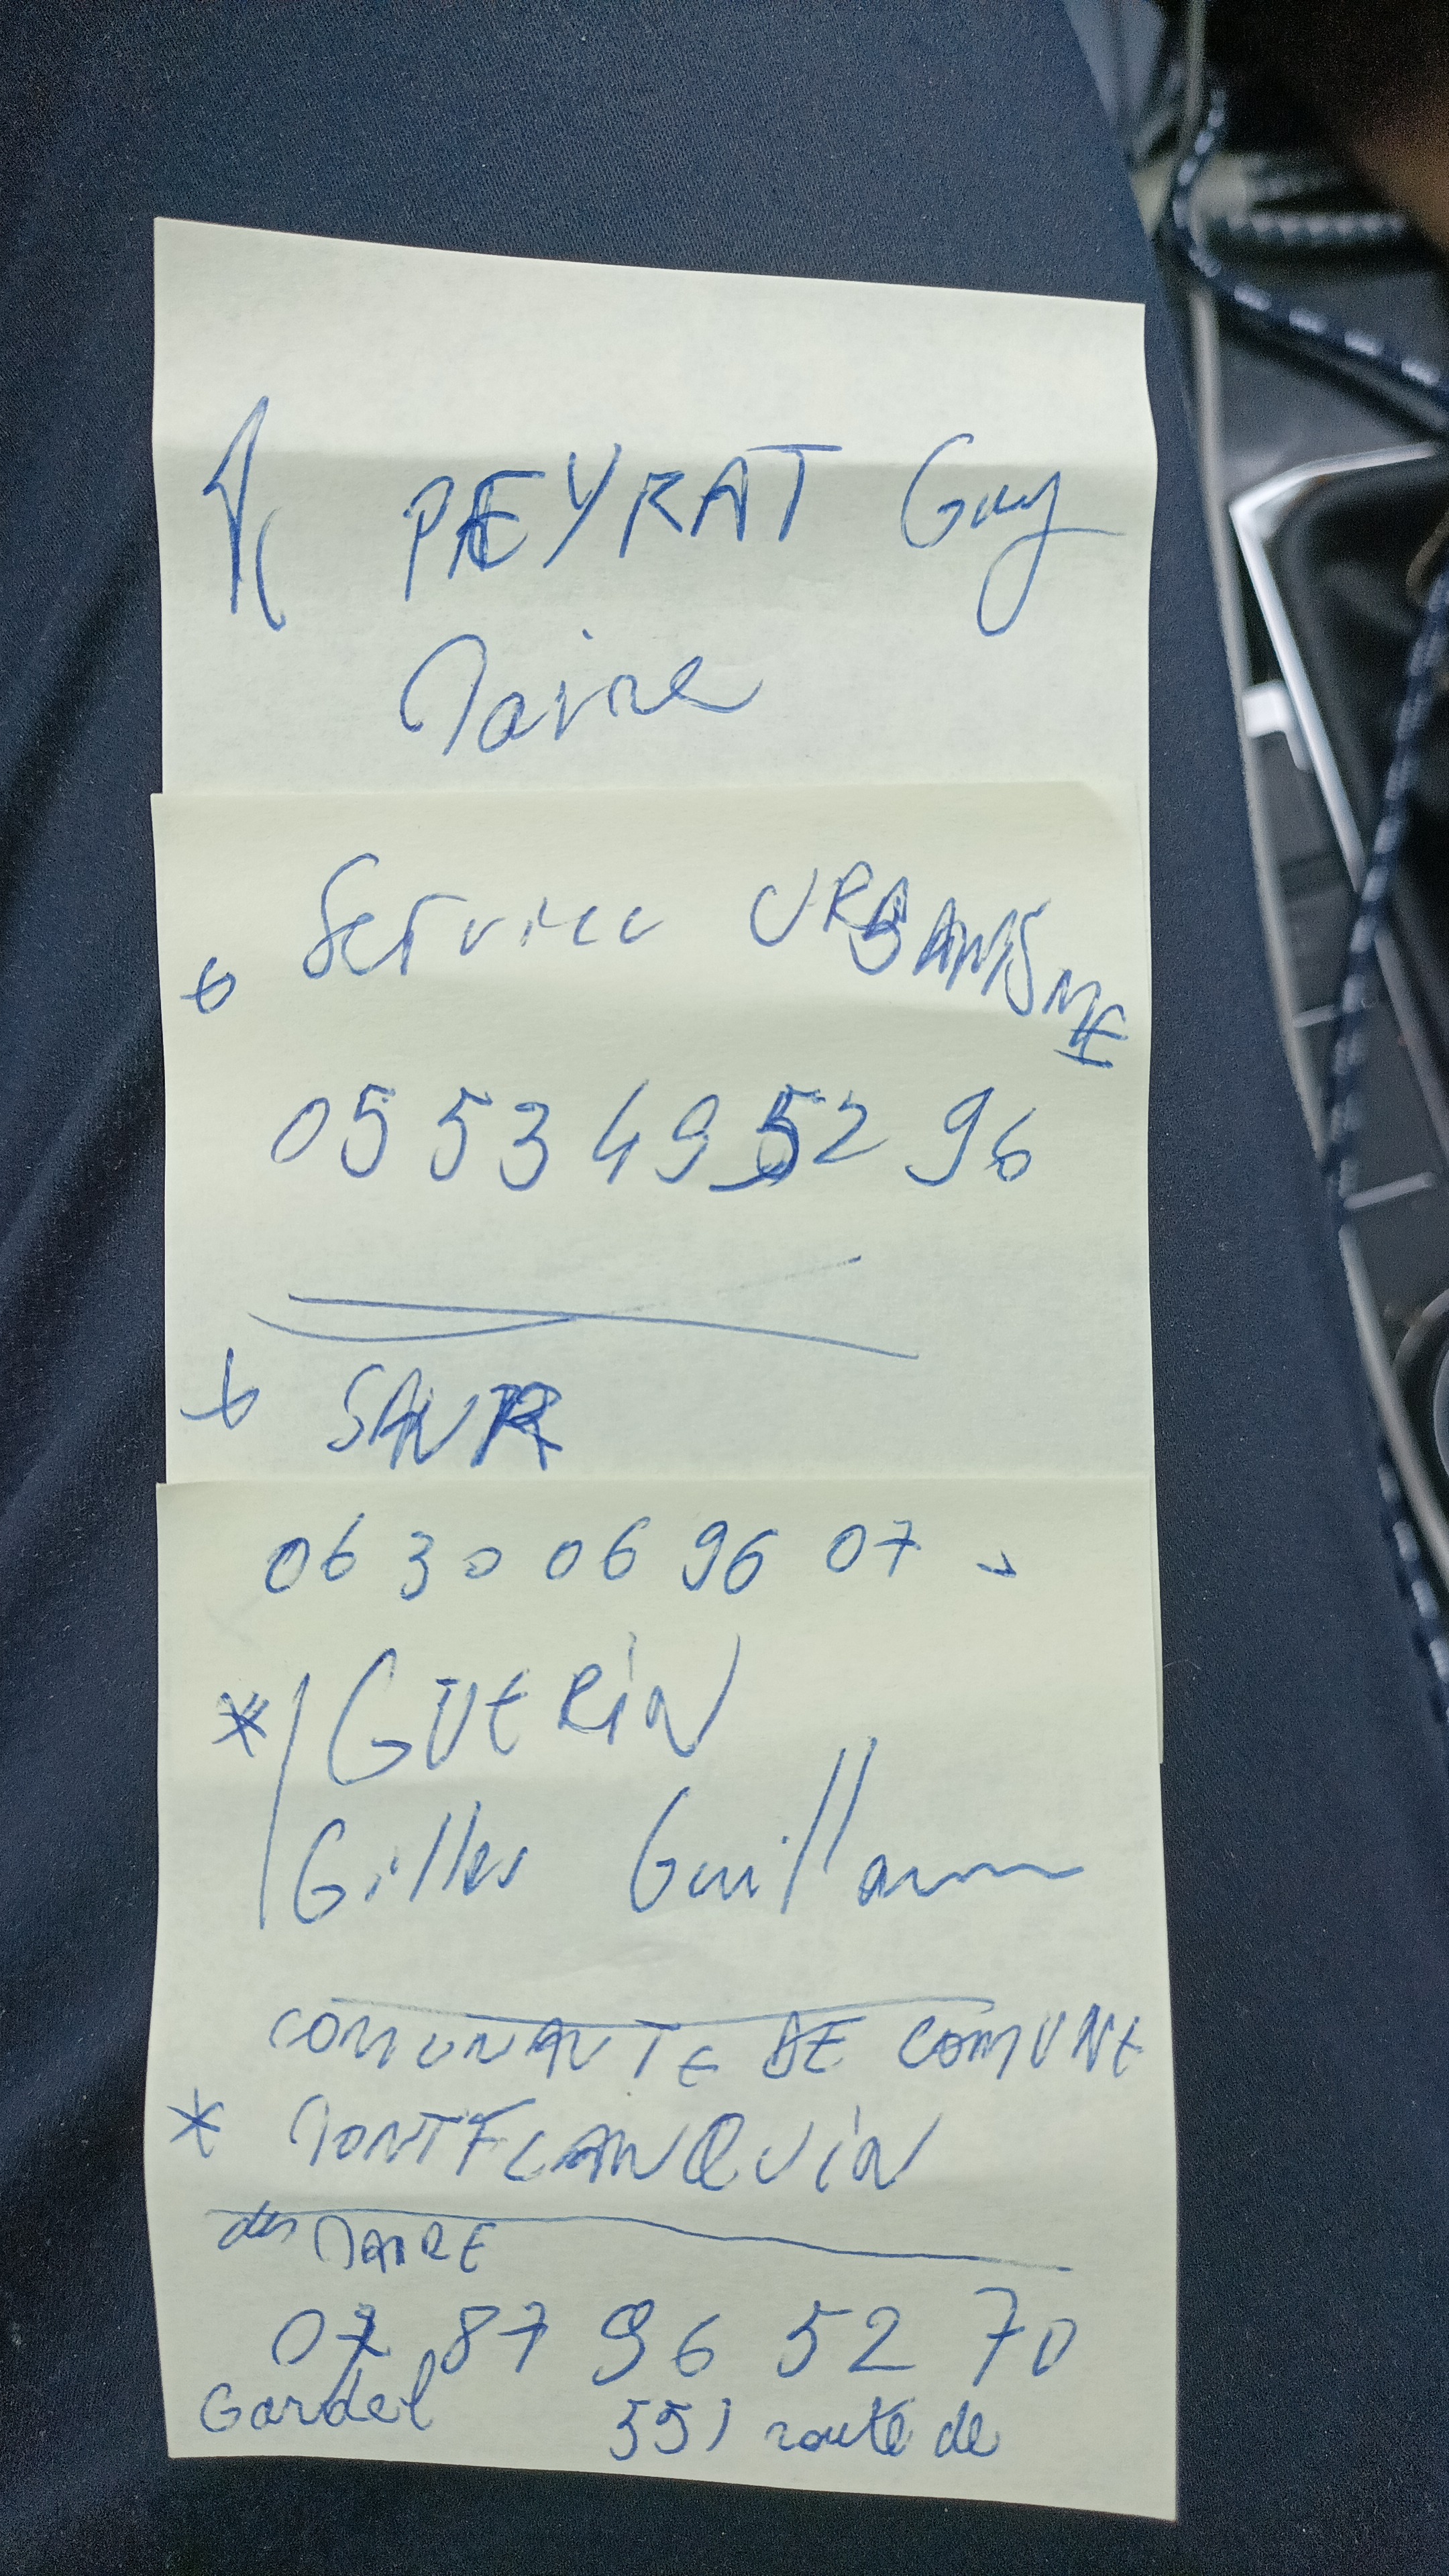 Mr PEYRAT Guy
Maire
Service URBANISME
05 53 49 52 96
SAUR
06 30 06 96 07
* GUERIN
Gilles Guillaume
COMUNAUTE DE COMUNE
* MONTFLANQUIN
MAIRE
07 87 96 52 70
Gardel 551 route de